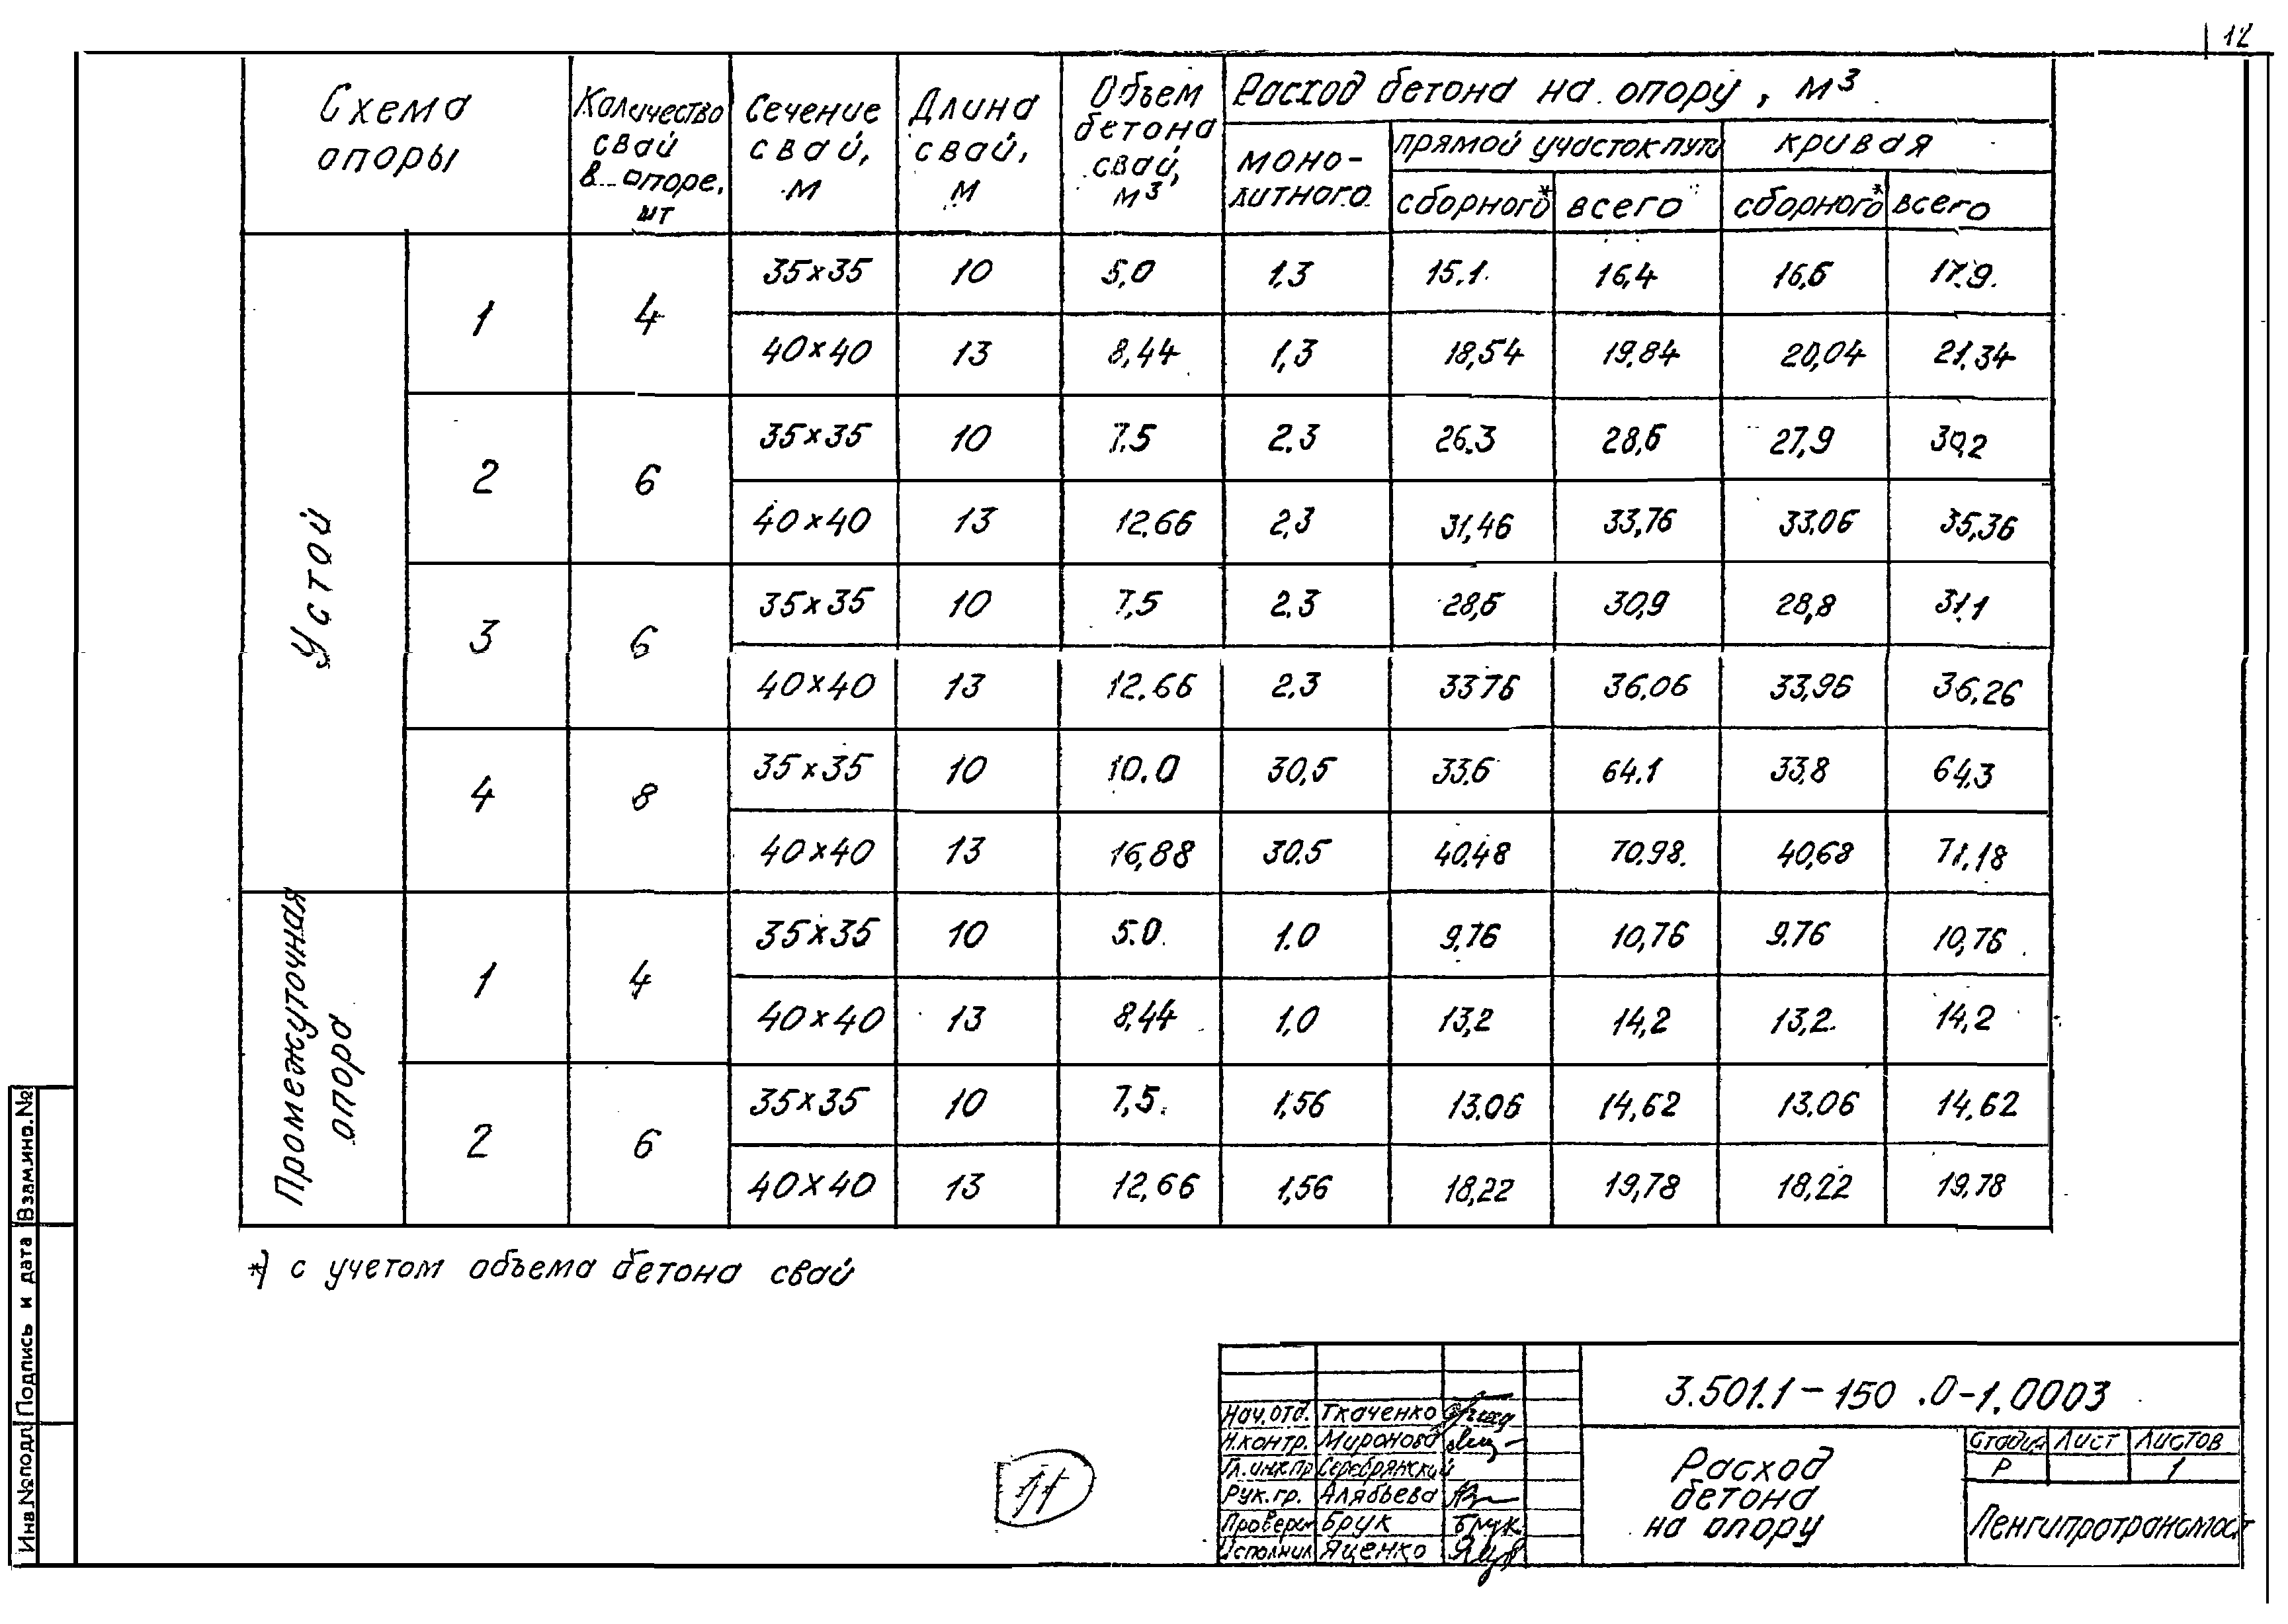 12
Схема опоры
Количество свай в опоре, шт
Сечение свай, м
Длина свай, м
Объем бетона свай, м³
Расход бетона на опору, м³
моно-
литного
прямой участок пути
кривая
сборного* всего сборного* всего
Устой
1 4 35×35 10 5,0 1,3 15.1 16,4 16,6 17.9
40×40 13 8,44 1,3 18,54 19.84 20,04 21.34
2 6 35×35 10 7.5 2.3 26.3 28,6 27,9 30,2
40×40 13 12.66 2.3 31,46 33,76 33.06 35,36
3 6 35×35 10 7,5 2.3 28,6 30,9 28,8 31.1
40×40 13 12.66 2.3 33 76 36.06 33,96 36,26
4 8 35×35 10 10.0 30,5 33.6 64.1 33,8 64.3
40×40 13 16,88 30.5 40.48 70.98. 40,68 71.18
Промежуточная
опора
1 4 35×35 10 5.0 1.0 9.76 10,76 9.76 10,76
40×40 13 8.44 1,0 13,2 14,2 13,2 14,2
2 6 35×35 10 7,5. 1,56 13.06 14,62 13.06 14,62
40×40 13 12,66 1,56 18,22 19,78 18,22 19.78
*) с учетом объема бетона свай
11
3.501.1-150 .0-1.0003
Нач.отд. Ткаченко
Н.контр. Миронова
Гл.инж.пр Серебрянский
Рук.гр. Алябьева
Проверил Брук Брук
Исполнил Яценко
Расход
бетона
на опору
Стадия Лист Листов
Р 1
Ленгипротрансмост
Инв.№подл. Подпись и дата Взам.инв.№